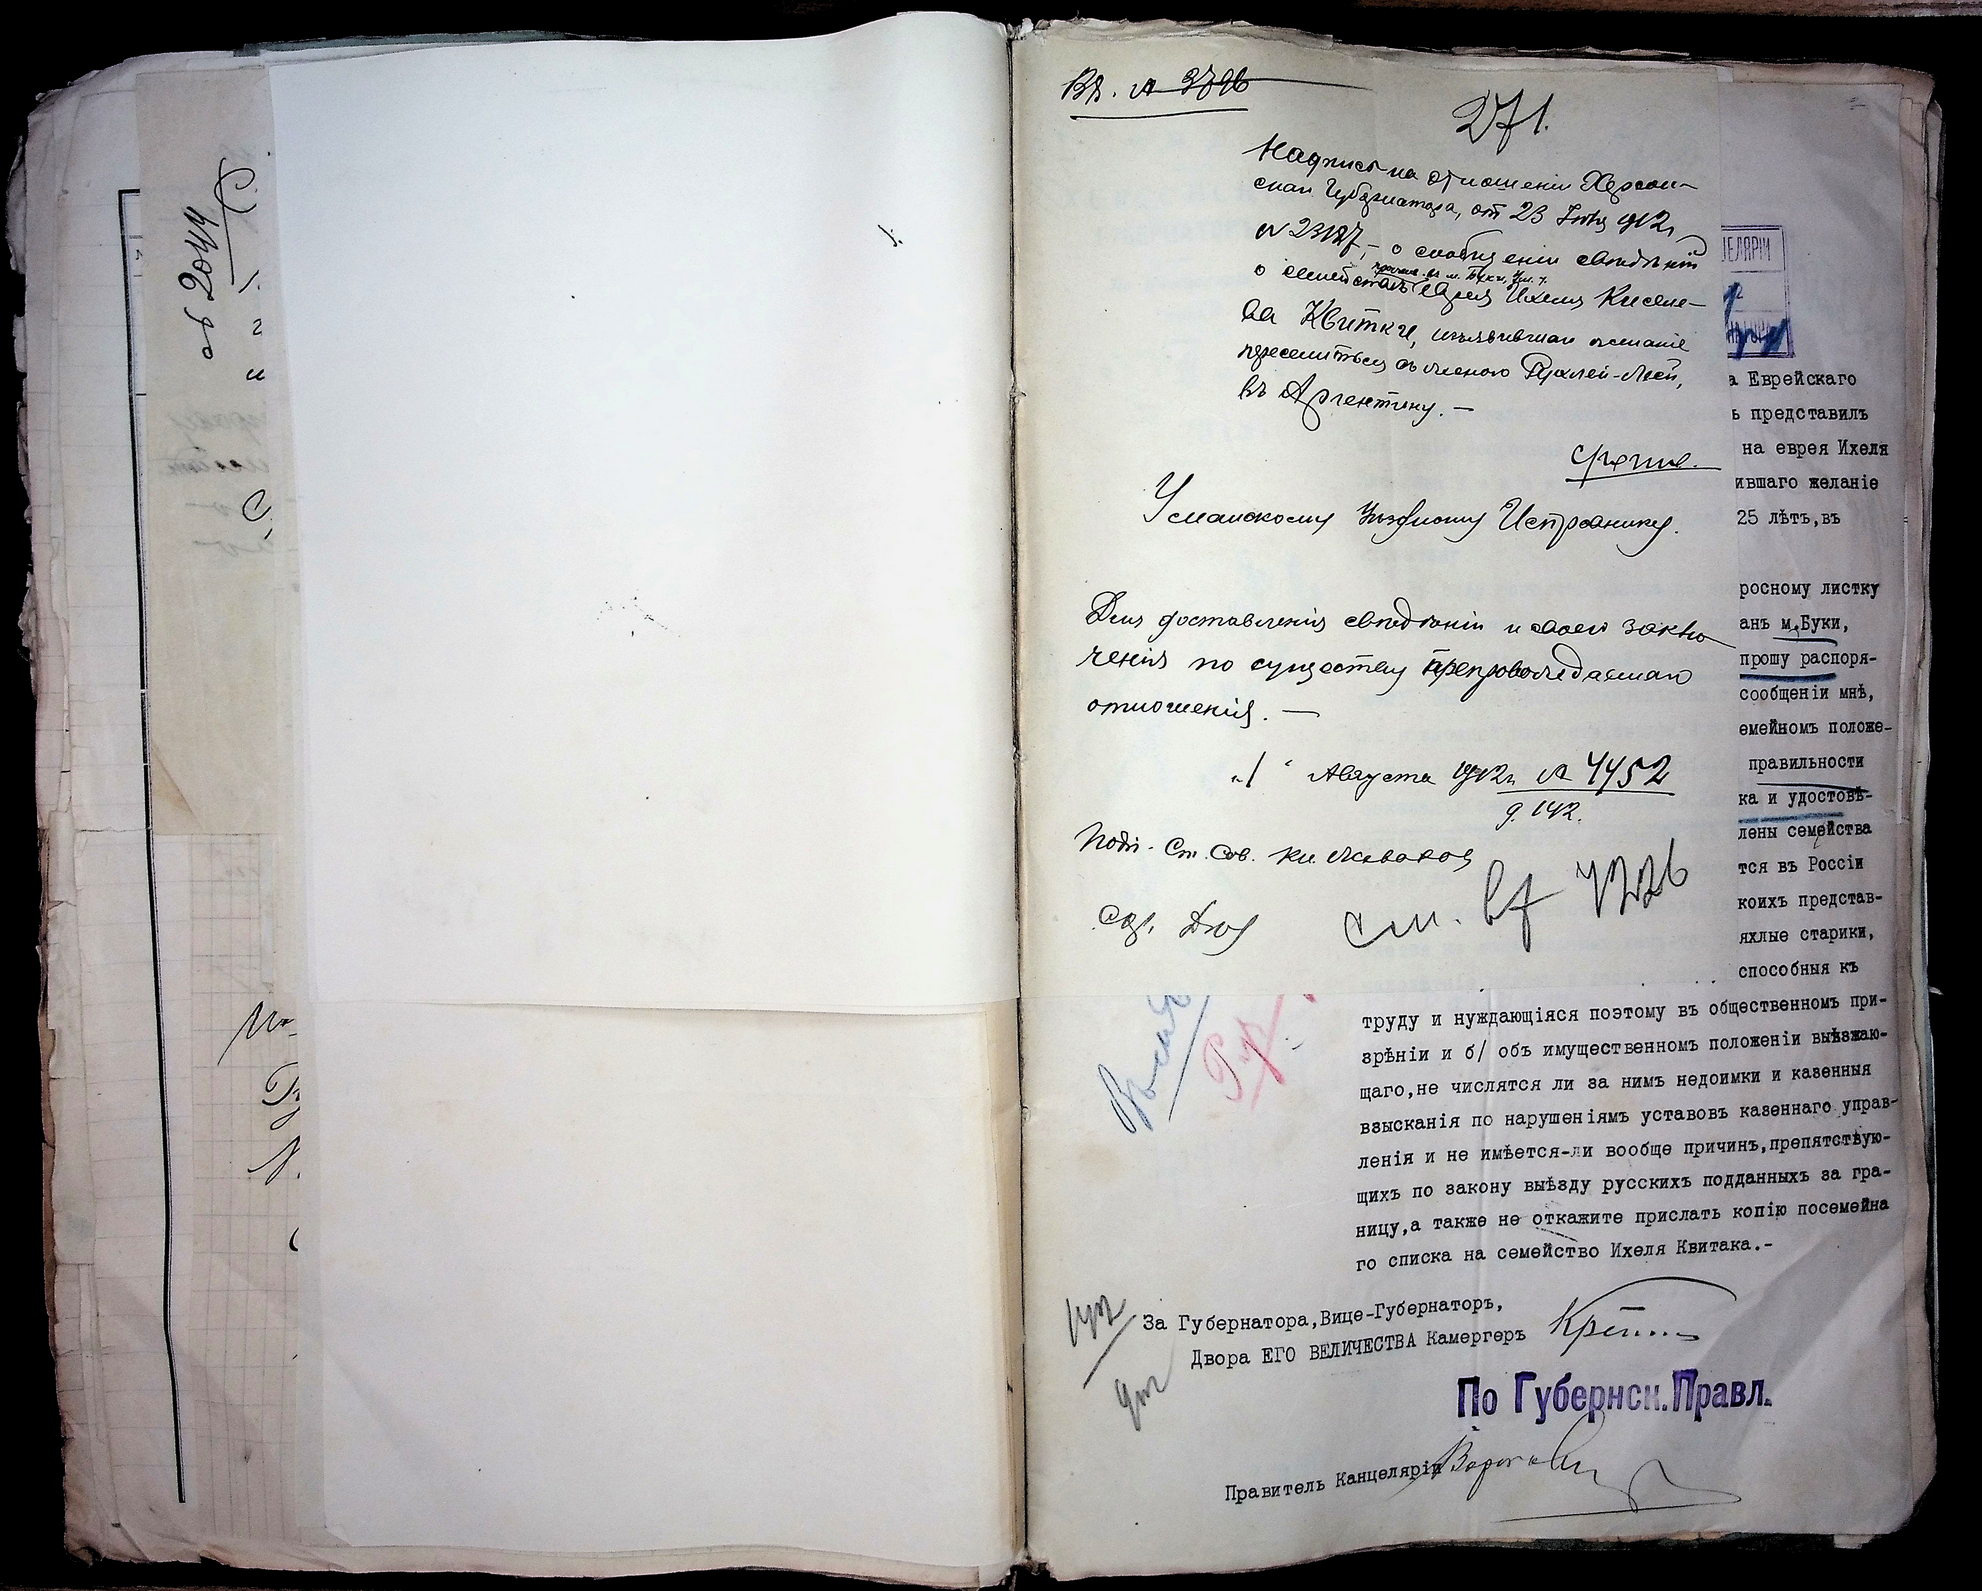 № 2044
Вх. № 3796
271.
Надпись на отношеніи Херсон-
скаго Губернатора, от 23 Іюля 1912 г.
№ 23127, – о сообщеніи свѣдѣній
прожив. въ м. Буки, Ум. у.
о семействѣ еврея Ихеля Киселе-
ва Квитки, изъявившаго желаніе
переселиться съ женою Рухлей-Леей,
въ Аргентину. –
Срочно.
Уманскому Уѣздному Исправнику.
Для доставленія свѣдѣній и своего заклю
ченія по существу препровождаемаго
отношенія. –
„1" Августа 1912 г. № 4452
д. 142.
Подп. Ст. Сов.
см. вх 4226
ЕЛЯРІИ
а Еврейскаго
ь представилъ
на еврея Ихеля
ившаго желаніе
25 лѣтъ,въ
росному листку
анъ м.Буки,
прошу распоря-
сообщеніи мнѣ,
емейномъ положе-
правильности
ка и удостовѣ-
лены семейства
тся въ Россіи
коихъ представ-
яхлые старики,
способныя къ
труду и нуждающіяся поэтому въ общественномъ при-
зрѣніи и б/ объ имущественномъ положеніи выѣзжаю-
щаго,не числятся ли за нимъ недоимки и казенныя
взысканія по нарушеніямъ уставовъ казеннаго управ-
ленія и не имѣется-ли вообще причинъ,препятствую-
щихъ по закону выѣзду русскихъ подданныхъ за гра-
ницу,а также не откажите прислать копію посемейна
го списка на семейство Ихеля Квитака.-
За Губернатора,Вице-Губернаторъ,
Двора ЕГО ВЕЛИЧЕСТВА Камергеръ
По Губернск.Правл.
Правитель Канцеляріи